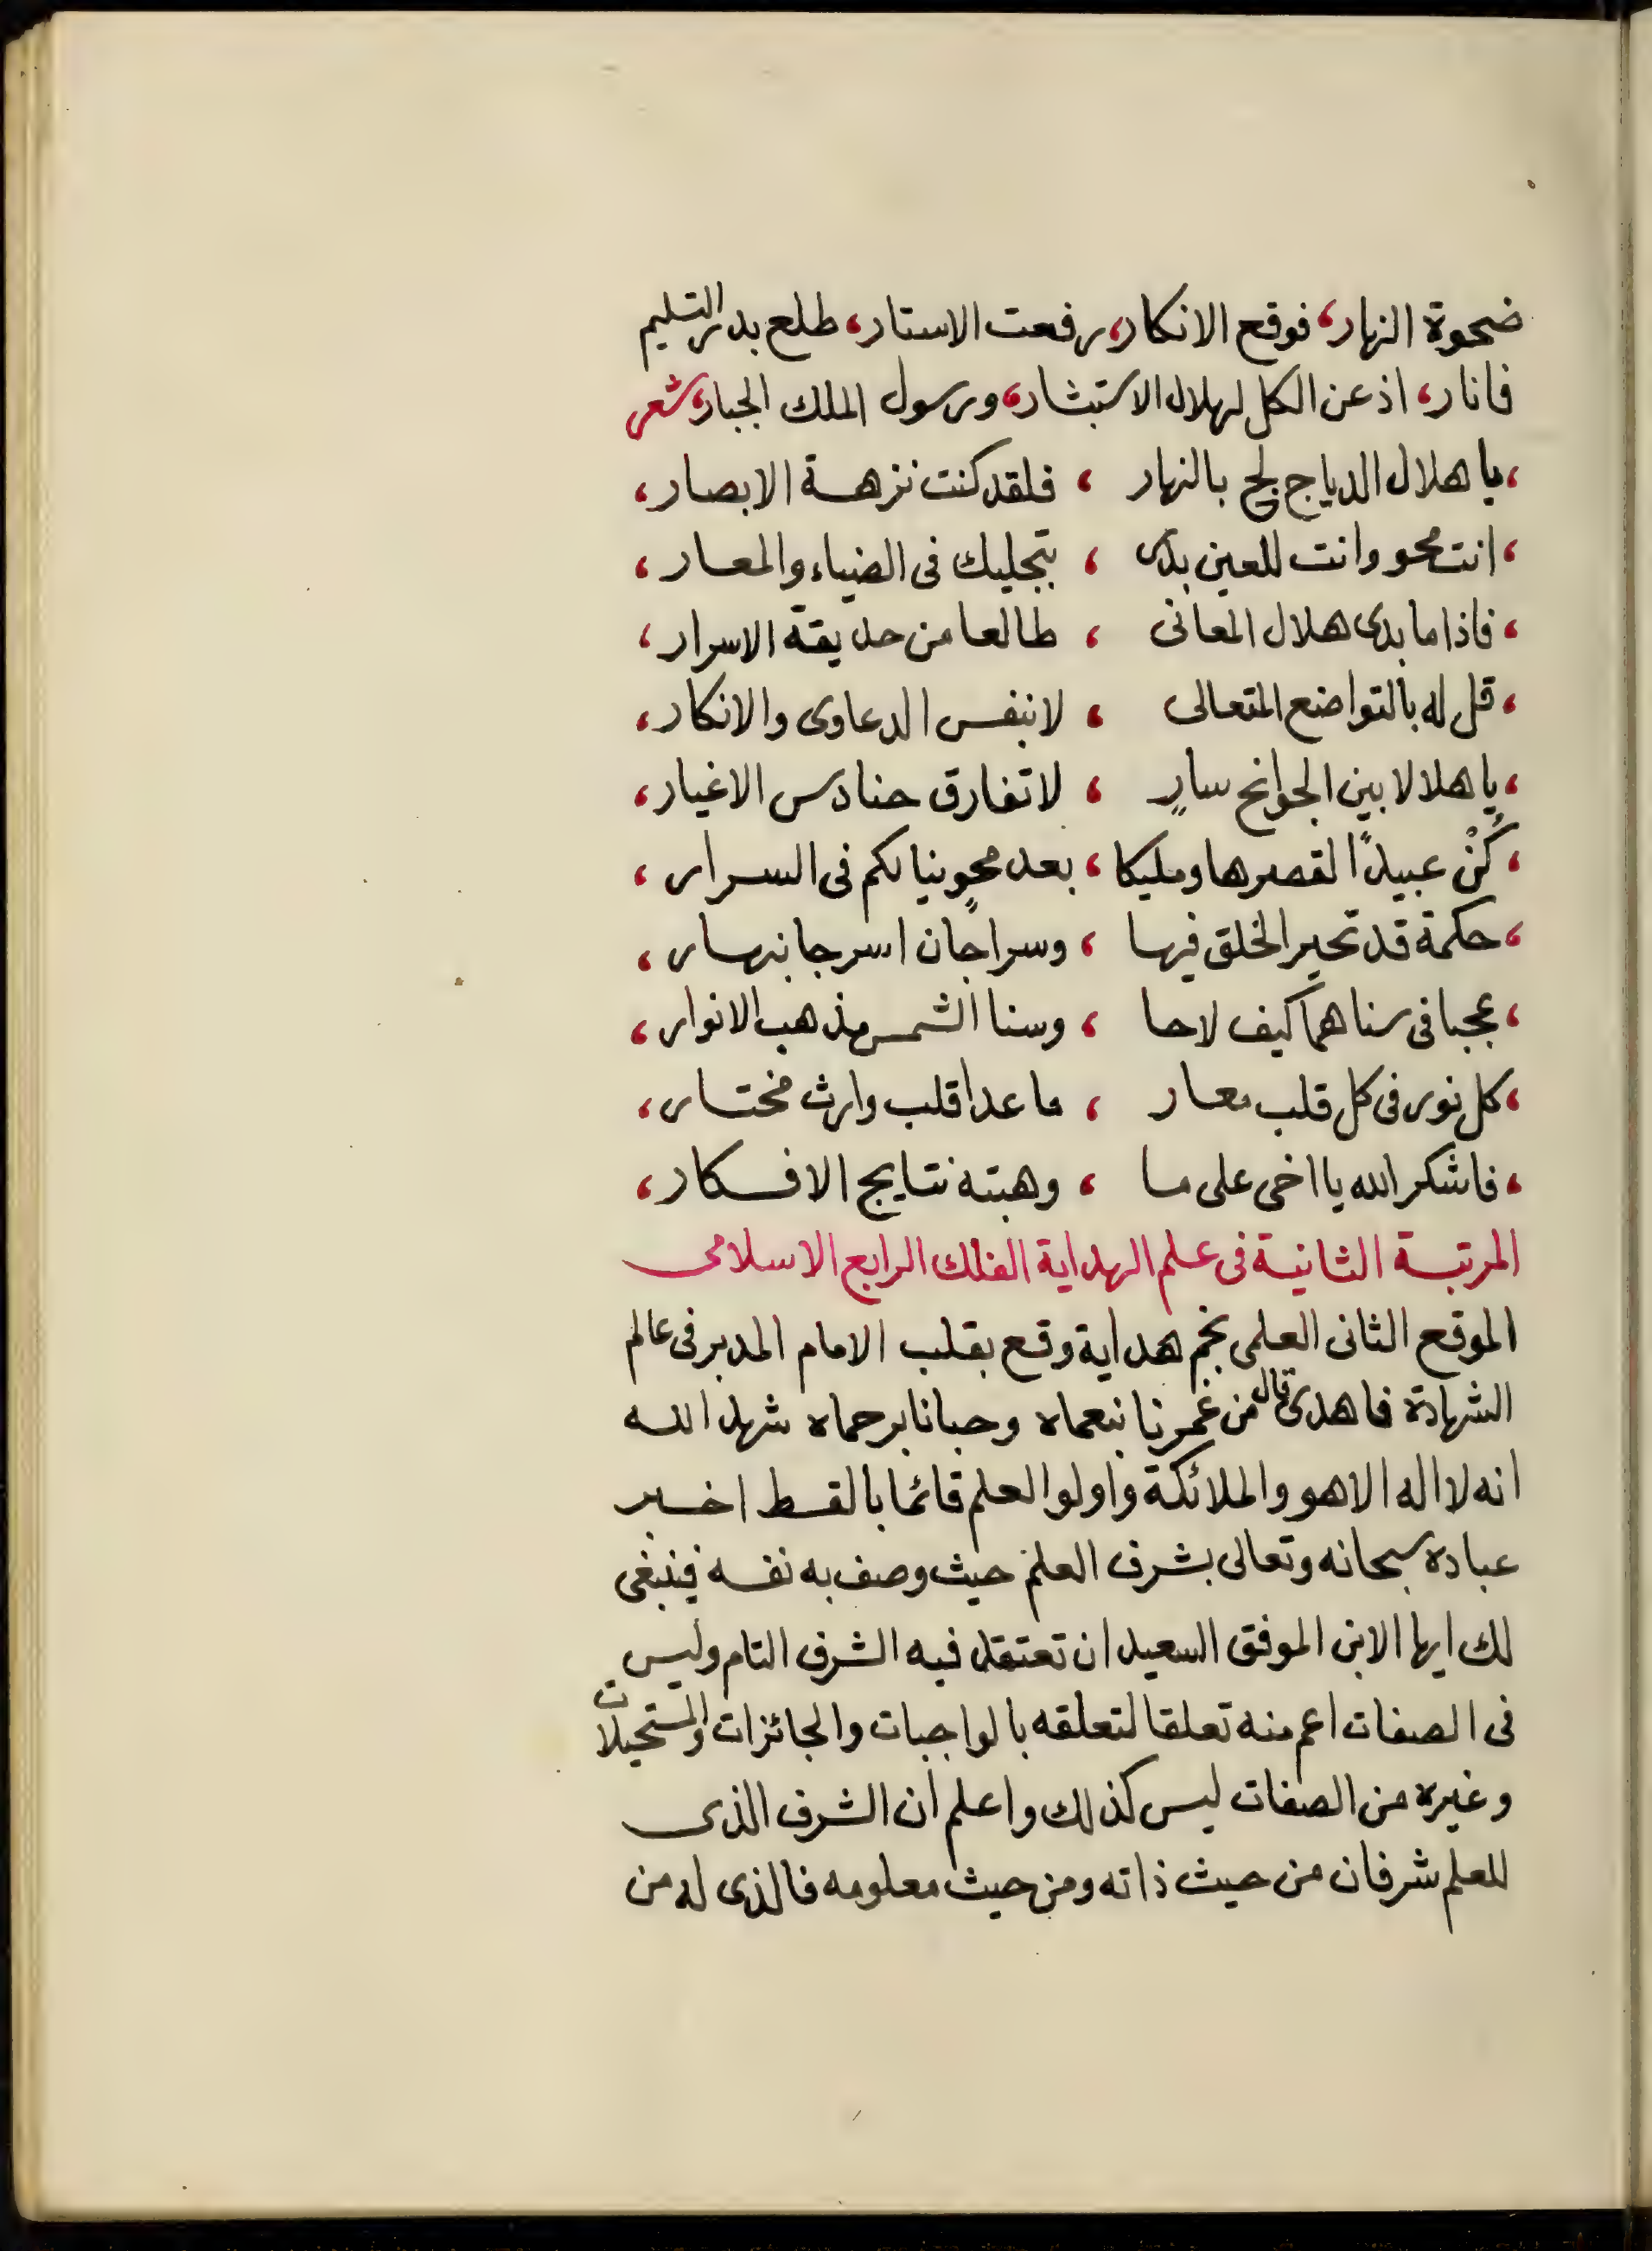 ضحوة النهار، فوقع الانكار، رفعت الاستار، طلع بدر التسليم
فانار، اذعن الكل لهلال الاستبشار، ورسول الملك الجبار، شعر
، يا هلال الدياج لح بالنهار ، فلقد كنت نزهة الابصار،
، انت محو وانت للعين بدى ، بتجليك فى الضياء والمعار،
، فاذا ما بدى هلال المعانى ، طالعا من حديقة الاسرار،
، قل له بالتواضع المتعالى ، لا بنفس الدعاوى والانكار،
، يا هلالا بين الجوانح سارٍ ، لا تفارق حنادس الاغيار،
، كُنْ عبيدًا لقصرها ومليكا ، بعد محوٍ ينالكم فى السرار،
، حكمة قد تحير الخلق فيها ، وسراجان اسرجا بنهار،
، عجبا فى سناهما كيف لاحا ، وسنا الشمس مذهب الانوار،
، كل نور فى كل قلب معار ، ما عدا قلب وارث مختار،
، فاشكر الله يا اخى على ما ، وهبته نتايج الافكار،
المرتبة الثانية فى علم الهداية الفلك الرابع الاسلامى
الموقع الثانى العلمى نجم هداية وقع بقلب الامام المدبر فى عالم
الشهادة فاهدى قال من غمرنا بنعماه وحبانا برحماه شهد الله
انه لا اله الا هو والملائكة واولوا العلم قائما بالقسط اخبر
عباده سبحانه وتعالى بشرف العلم حيث وصف به نفسه فينبغى
لك ايها الابن الموفق السعيد ان تعتقد فيه الشرف التام وليس
فى الصفات اعم منه تعلقا لتعلقه بالواجبات والجائزات والمستحيلات
وغيره من الصفات ليس كذلك واعلم ان الشرف الذى
للعلم شرفان من حيث ذاته ومن حيث معلومه فالذى له من